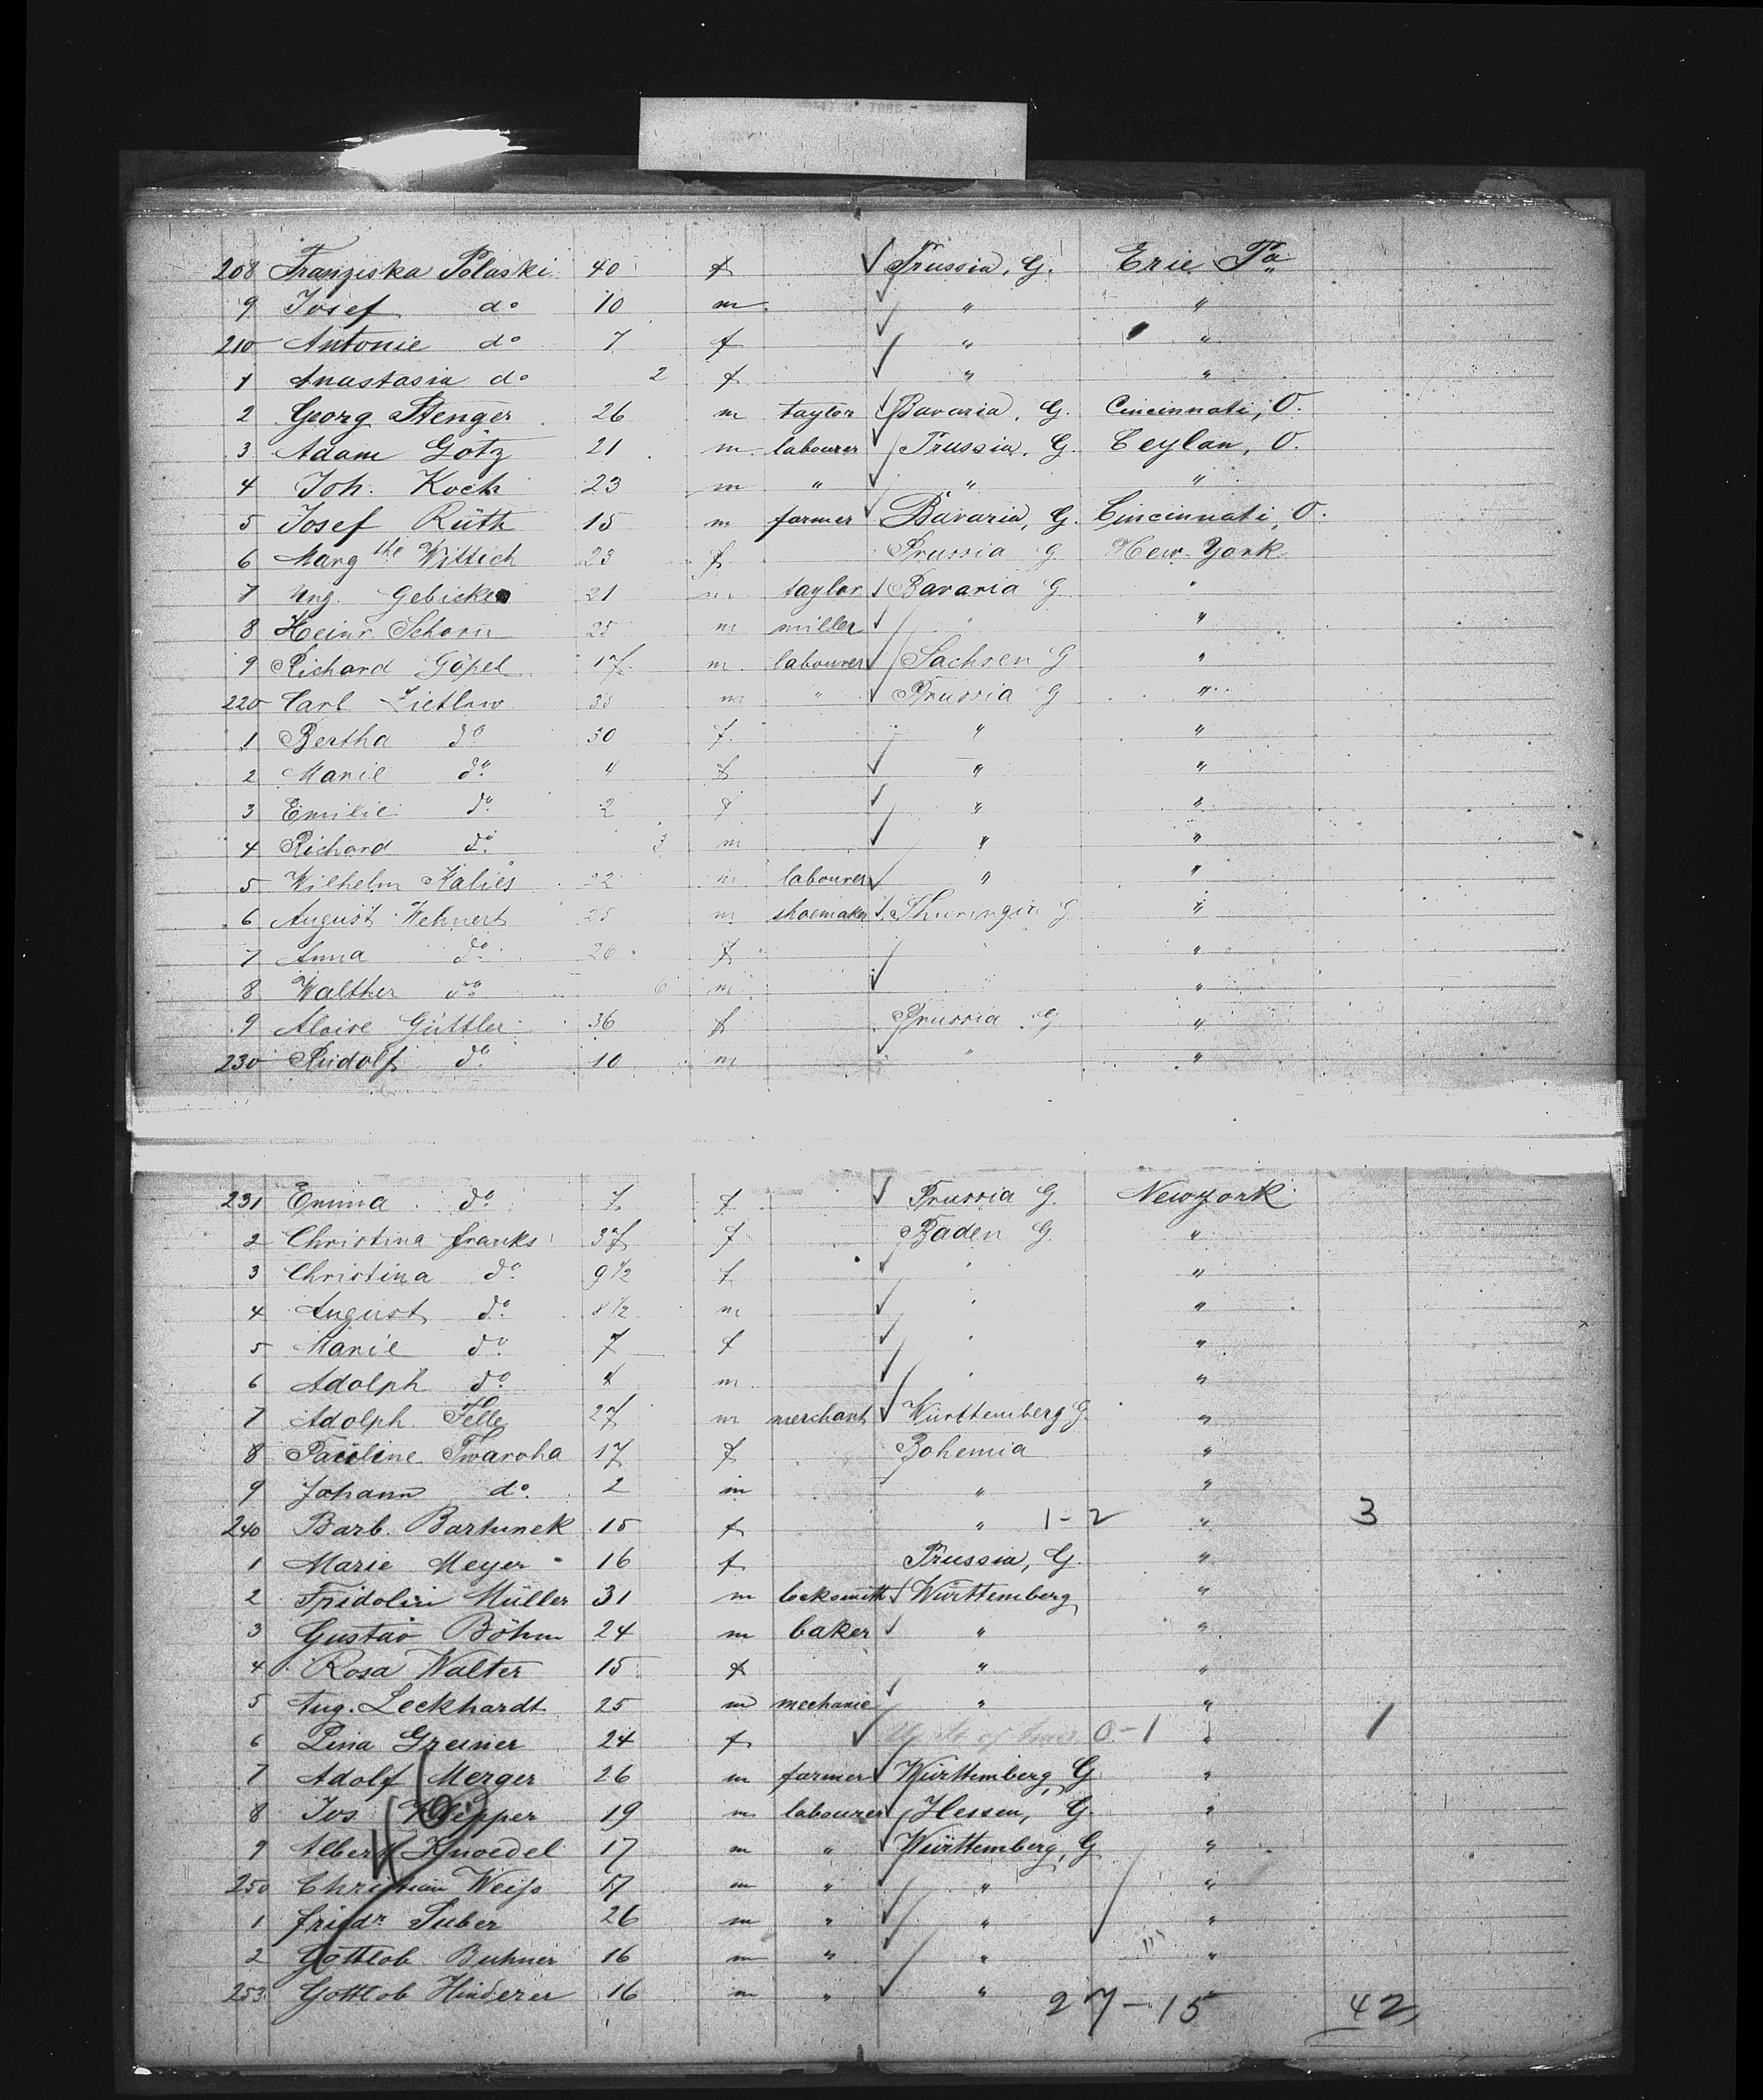 208 Franziska Polaski 40 f Prussia, G. Erie Pa
9 Josef do 10 m " "
210 Antonie do 7 f " "
1 Anastasia do 2 f " "
2 Georg Stenger 26 m taylor Bavaria, G. Cincinnati, O.
3 Adam Götz 21 m labourer Prussia, G. Ceylan, O.
4 Joh. Koch 23 m " " "
5 Josef Rüth 15 m farmer Bavaria, G. Cincinnati, O.
6 Margthe Wittich 23 f Prussia G New-York
7 Gebicke 21 m taylor Bavaria G "
8 Heinr Schorn 25 m miller " "
9 Richard Göpel 17 m labourer Sachsen G "
220 Carl Lietlow 35 m " Prussia G "
1 Bertha do 30 f " "
2 Marie do 4 f " "
3 Emilie do 2 f " "
4 Richard do 3 m " "
5 Wilhelm Kalies 22 m labourer " "
6 August Wehnert 25 m shoemaker Thuringia G "
7 Anna do 26 f " "
8 Walther do 6 m " "
9 Aloise Güttler 36 f Prussia G "
230 Rudolf do 10 m " "
231 Emma do 7 f Prussia G. Newyork
2 Christina Franks 37 f Baden G. "
3 Christina do 9 1/2 f " "
4 August do 8 1/2 m " "
5 Marie do 7 f " "
6 Adolph do 4 m " "
7 Adolph Felle 27 m merchant Württemberg G. "
8 Pauline Twaroha 17 f Bohemia "
9 Johann do 2 m " "
240 Barb. Bartunek 15 f " 1-2 " 3
1 Marie Meyer 16 f Prussia, G. "
2 Fridolin Müller 31 m locksmith Württemberg "
3 Gustav Böhm 24 m baker " "
4 Rosa Walter 15 f " "
5 Aug. Leckhardt 25 m mechanic " "
6 Lina Greiner 24 f U. St. of Amer. 0-1 " 1
7 Adolf Merger 26 m farmer Württemberg, G "
8 Jos Klepper 19 m labourer Hessen, G. "
9 Albert Knoedel 17 m " Württemberg, G "
250 Christian Weiß 17 m " " "
1 Friedr Suber 26 m " " "
2 Gottlob Buhner 16 m " " "
253 Gottlob Hinderer 16 m " "
27-15 42